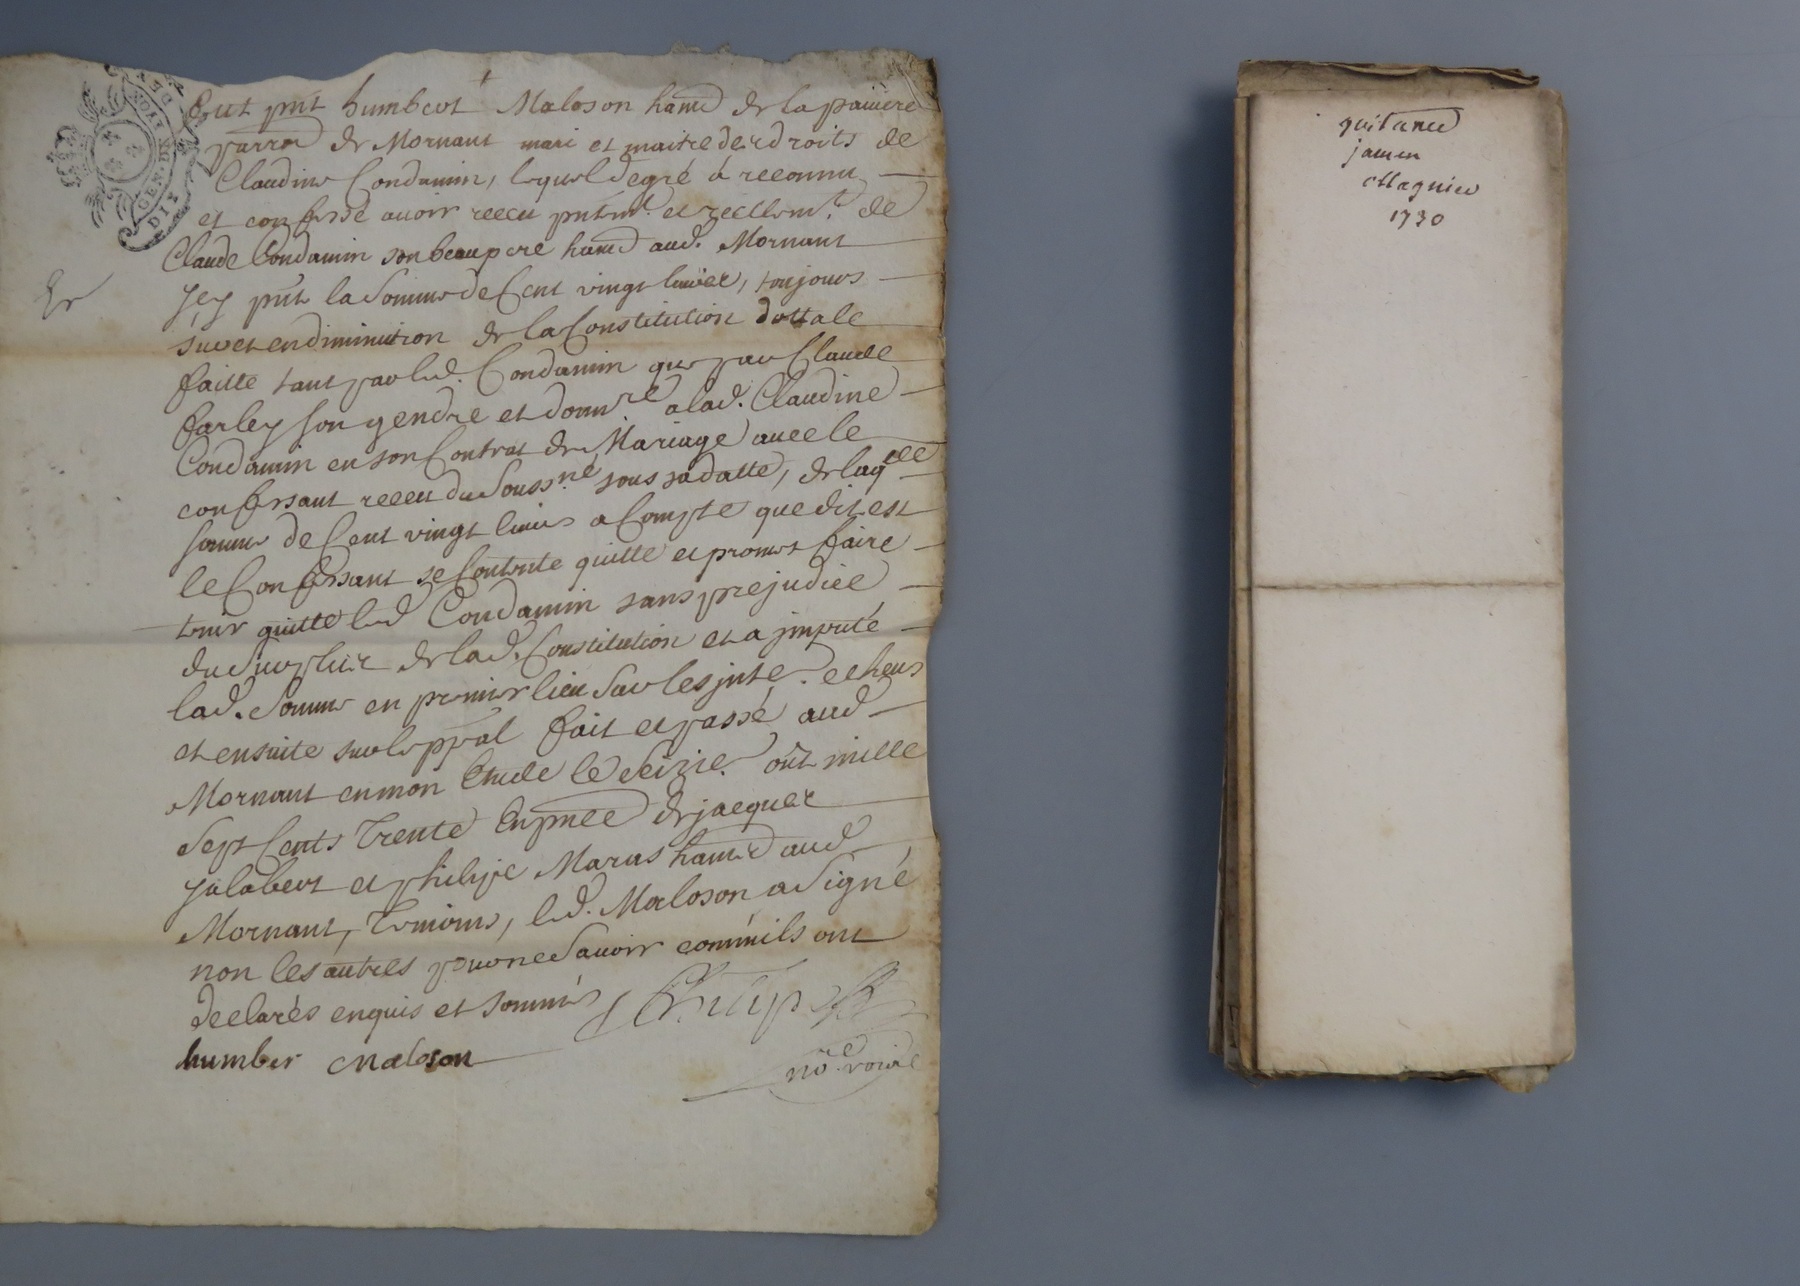 GEN. DE LYON
DIX
fut pnt humbert Maloson hant de la paiuiere
parroe de Mornant mari et maitre des droits de
Claudine Condamin, lequel degré á reconnu
et confessé auoir receu pntemt. et reellemt. de
Claude Condamin son beaupere hant aud. Mornant
jcy pnt la Somme de Cent vingt liures, toujours
sur et en diminution de la Constitution dottale
faitte tant par led. Condamin que par Claude
farley son gendre et donnre a lad. Claudine
Condamin en son Contrat de Mariage auec le
confessant receu du Soussné sous sa datte, de laqelle
somme de Cent vingt liures a Compte que dit est
le Confessant se Contente quitte et promet faire
tenir quitte led Condamin sans prejudice
du Surplus de lad. Constitution et a jmputé
lad. Somme en premier lieu Sur les jnte. echeus
et ensuite sur le ppal fait et passé aud
Mornant en mon Etude le Seizie. oût mille
Sept Cents Trente En pnce de jacques
jalabert et philipe Maras hants aud
Mornant, Temoins, led. Maloson a Signé
non les autres pour ne Sauoir comm'ils ont
declarés enquis et sommés
humber maloson
nore. roial
quitance
jamen
Magnien
1730